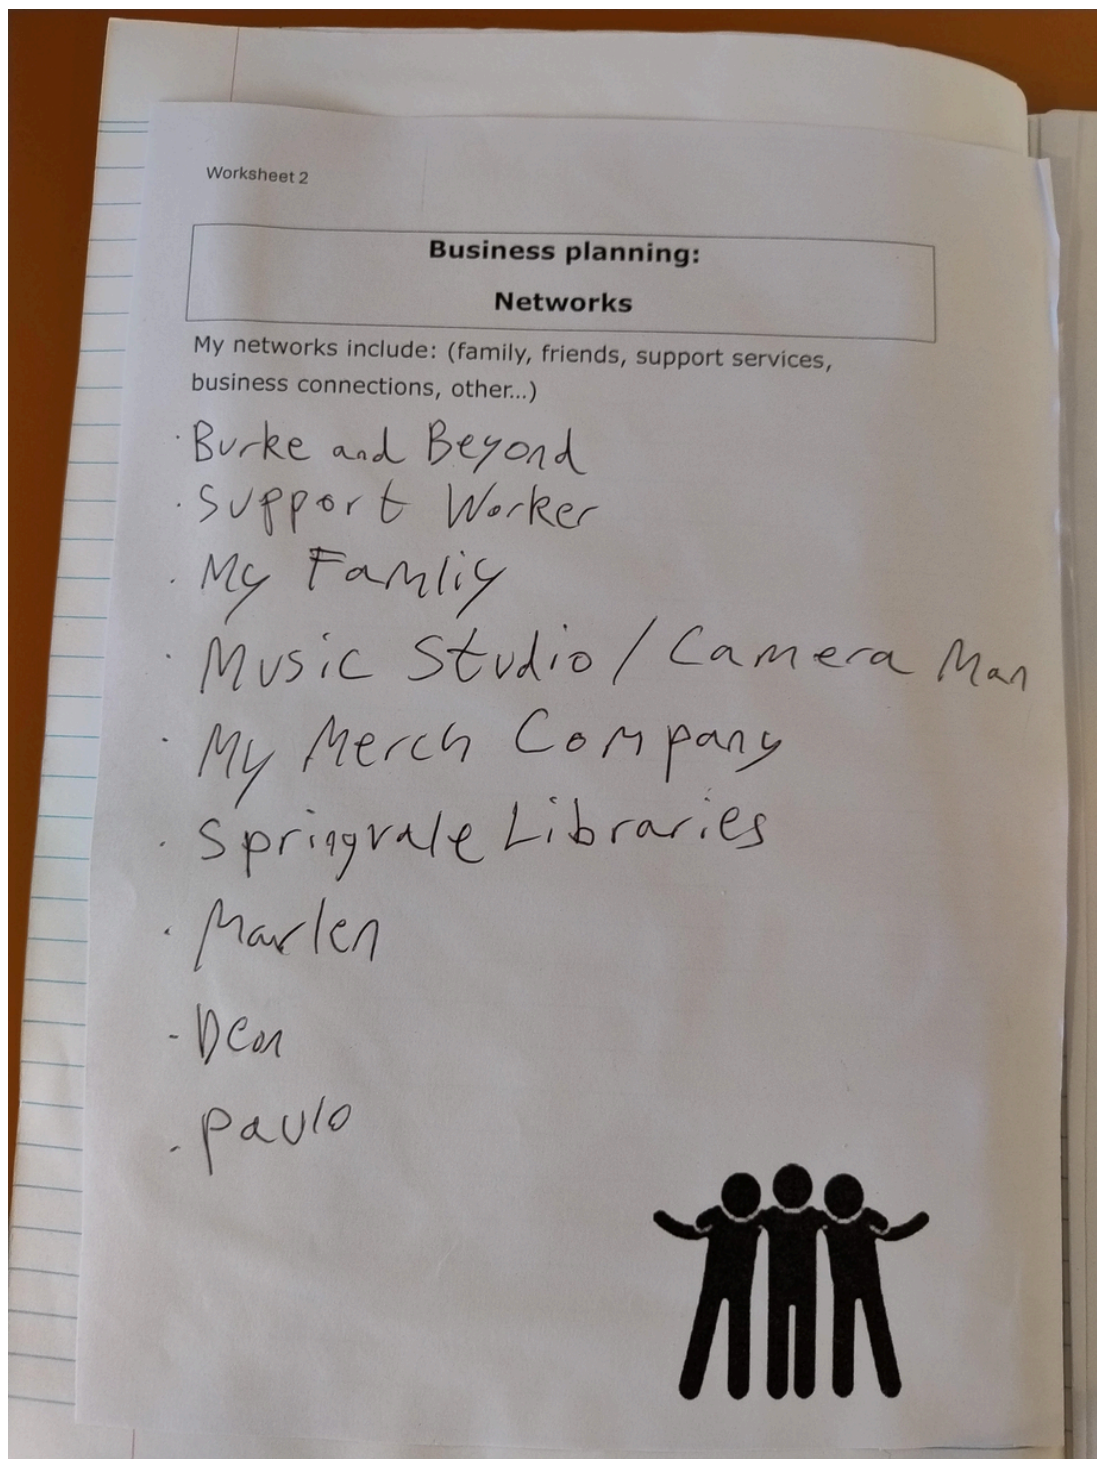 Worksheet 2
Business planning:
Networks
My networks include: (family, friends, support services,
business connections, other...)
· Burke and Beyond
· Support Worker
· My Famliy
· Music Studio / Camera Man
· My Merch Company
· Springvale Libraries
· Marlen
- Dean
· Paulo